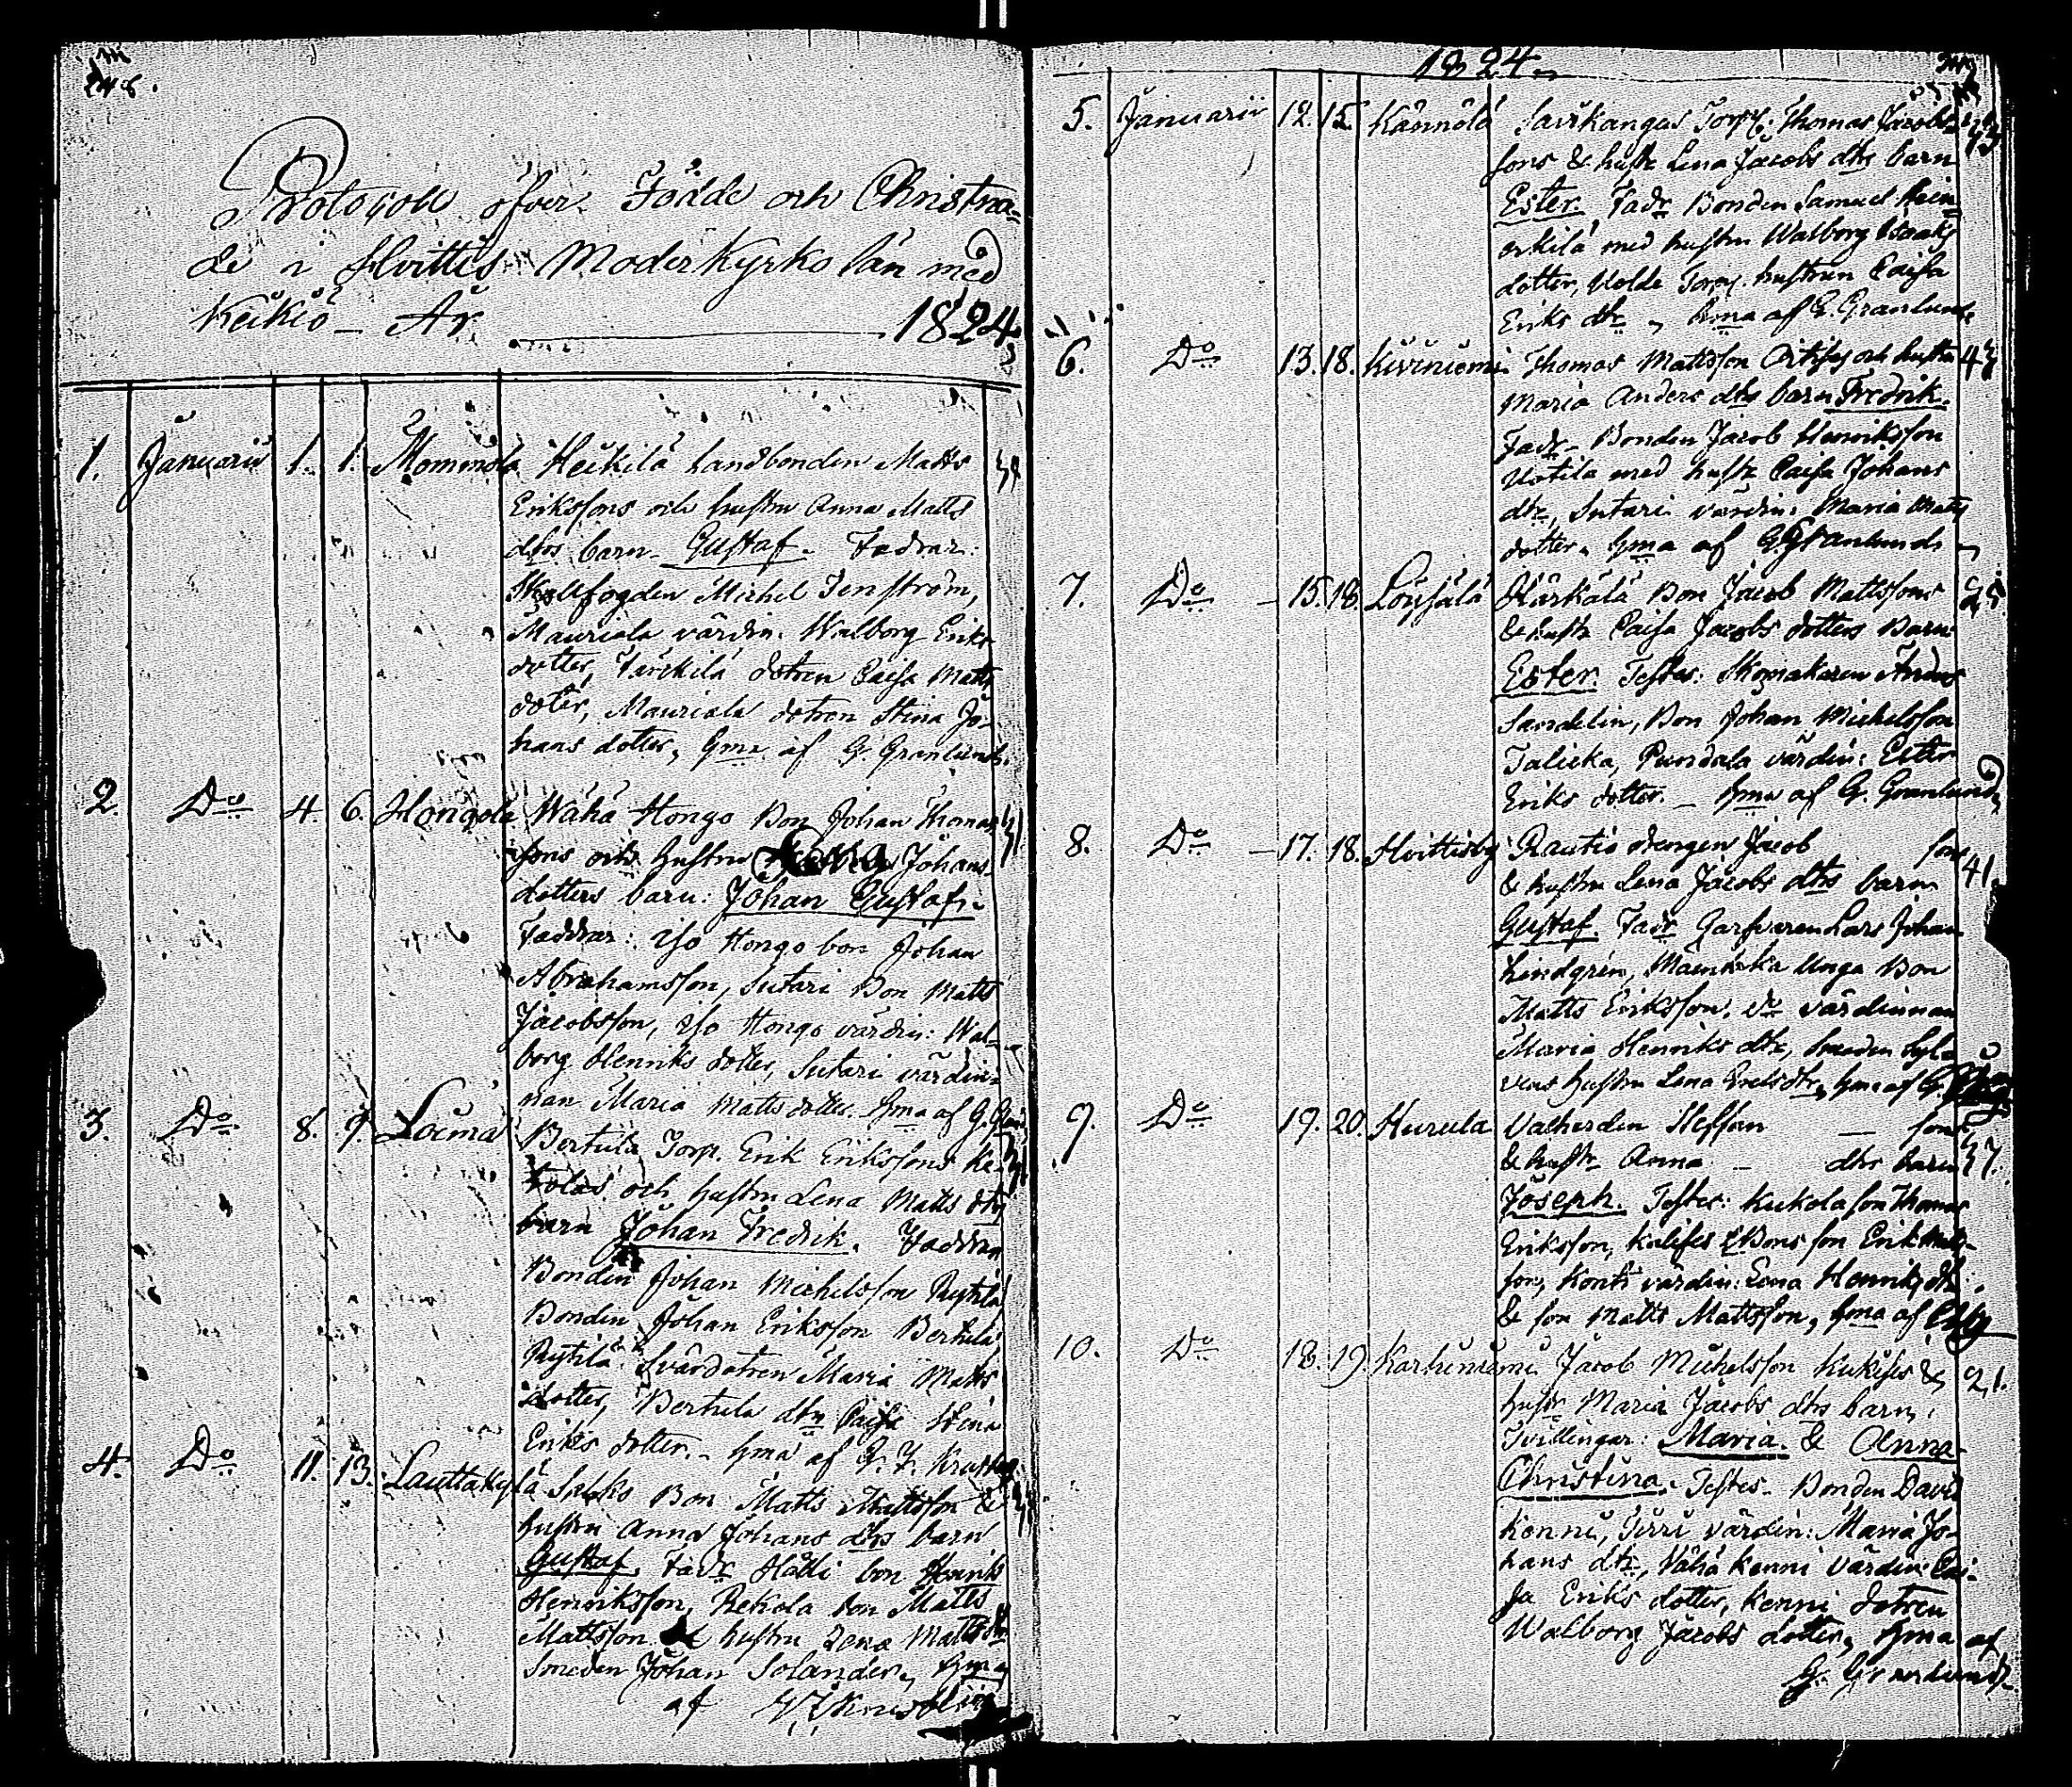 248.
Protocoll öfver Födde och Christna-
de i Hvittis Moderkyrko län med
Keikiö – År 1824.
1. Januarii 1. 1. Mommola Heikilä landbonden Matts
Erikssons och hustru Anna Matts
dtrs barn Gustaf. Faddrar:
Skallfogden Michel Tenström,
Mauriala värdin: Walborg Eriks
dotter, Värckilä dotren Caisa Matts
doter, Mauriala dotren Stina Jo-
hans dotter, hma af G. Granlund.
2. Do 4. 6. Hongola Wähä Hongo Bon Johan Thomas
sons och hustru Johans
dotters barn: Johan Gustaf.
Faddrar: Iso Hongo bon Johan
Abrahamsson, Sutari Bon Matts
Jacobsson, Iso Hongo värdin: Wal-
borg Henriks dotter, Sutari värdin-
nan Maria Matts dotter. hma af G.
3. Do 8. 9. Loima Bertula Torp. Erik Erikssons
och hustru Lena Matts dtrs
barn Johan Fredrik. Faddrar
Bonden Johan Michelsson Rytilä,
Bonden Johan Eriksson Bertula,
Rytilä Svärdotren Maria Matts
dotter, Bertula dtrn Caisa Stina
Eriks dotter. hma af
4. Do 11. 13. Lauttakylä Bon Matts Mattsson &
hustru Anna Johans dtrs barn
Gustaf. Fadr Hälli bon Henrik
Henriksson, Rekola bon Matts
Mattsson & hustru Lena Matts dtr
Smeden Johan Solander, hma
af
1824.
5. Januarii 12. 15. Kännölä Sairkangas Torp: Thomas Jacobs
sons & hustr Lena Jacobs dtrs barn
Ester. Fadr Bonden Samuel Hein
orkilä med hustru Walborg Isaaks
dotter, Torp. hustrun Caisa
Eriks dtr, hma af G. Granlund.
6. Do 13. 18. Kiviniemi Thomas Mattsson och hustru 43
Maria Anders dtrs barn Fredrik.
Fadr. Bonden Jacob Henriksson
Uotila med hustr Caisa Johans
dtr, Sutari värdin: Maria Matts
dotter. hma af G. Granlund.
7. Do 15. 18. Loujälä Härkälä Bon Jacob Mattssons 25
& hustr Caisa Jacobs dotters Barn
Ester. Testes: Skomakaren Anders
Sandelin, Bon Johan Michelsson
Talicka, Pundala värdin: Ester
Eriks dotter. – hma af G. Granlund
8. Do 17. 18. Hvittisby Rautio drengen Jacob sons 41.
& hustru Lena Jacobs dtrs barn
Gustaf. Fadr Garfvaren Lars Johan
Lindgrén, Mainikka Unga Bon
Matts Eriksson, do värdinnan
Maria Henriks dtr, Smeden
hustru Lena dtr, hma af G.
9. Do 19. 20. Hurula Valherden Steffan — sons
& hustr Anna — dtrs barn 37.
Joseph. Testes: Kukola son Thomas
Eriksson, Bons son Erik Matts-
son, Konti värdin: Lena Henriks dtr.
& son Matts Mattsson, hma af
10. Do 18. 19. Karhiniemi Jacob Michelsson & 21.
hustr Maria Jacobs dtrs barn,
Tvillingar: Maria. & Anna
Christina. Testes. Bonden David
Kenni, värdin: Maria Jo-
hans dtr, Wähä Kenni värdin: Cai-
sa Eriks dotter, Kenni dotren
Walborg Jacobs dotter, hma af
G. Granlund.